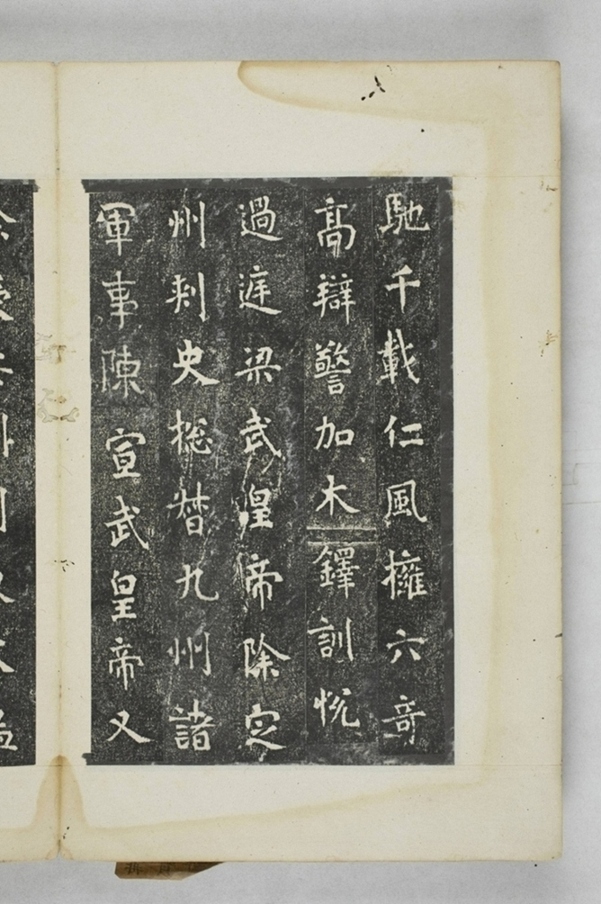 馳千載仁風擁六竒
高辯警加木鐸訓悦
過庭梁武皇帝除定
州刺史揔督九州諸
軍事陳宣武皇帝又